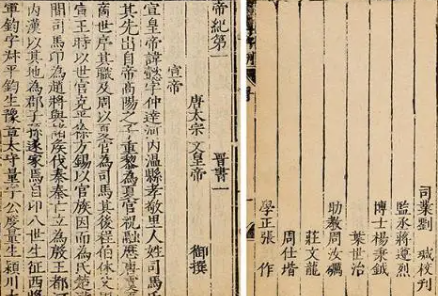 司業劉 珹校刊
監丞蔣遵烈
博士楊秉鉞
葉世治
助教周汝礪
莊文龍
周仕堦
學正張 作
帝紀第一 晉書一
唐太宗 文皇帝 御撰
宣帝
宣皇帝諱懿字仲達河內溫縣孝敬里人姓司馬氏
其先出自帝高陽之子重黎為夏官祝融歷唐虞夏
商世序其職及周以夏官為司馬其後程伯休父周
宣王時以世官克平徐方錫以官族因而為氏楚漢
間司馬卬為趙將與諸侯伐秦秦亡立為殷王都河
內漢以其地為郡子孫遂家焉自卬八世生征西將
軍鈞字叔平鈞生豫章太守量字公度量生潁川太